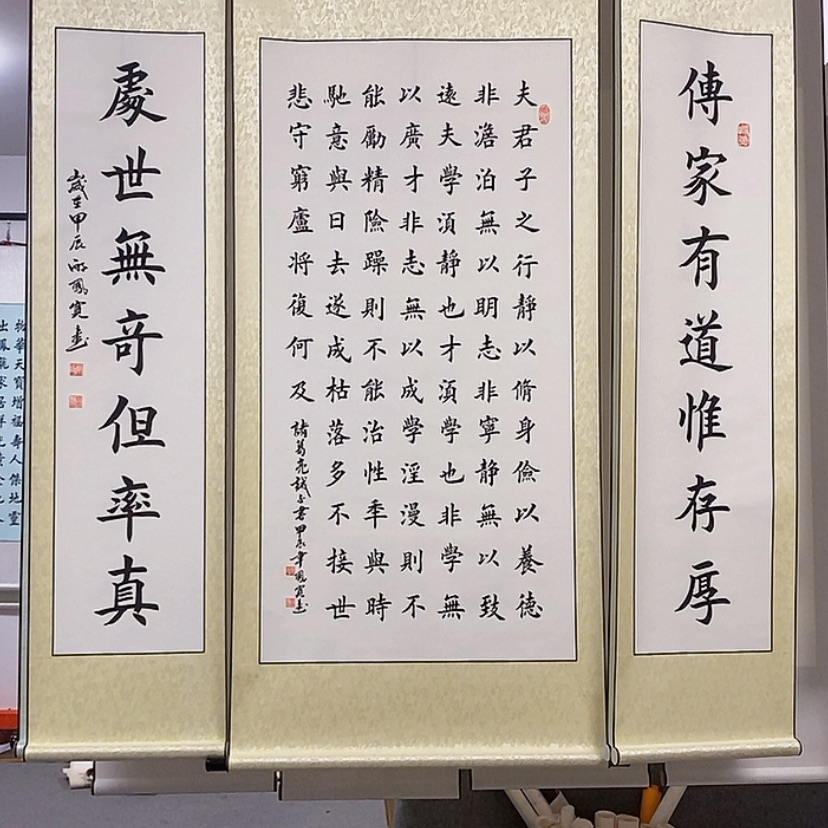 傳家有道惟存厚
夫君子之行靜以脩身儉以養德
非澹泊無以明志非寧静無以致
遠夫學湏靜也才湏學也非學無
以廣才非志無以成學淫漫則不
能勵精險躁則不能治性年與時
馳意與日去遂成枯落多不接世
悲守窮廬将復何及
諸葛亮誡子書甲辰年鳳寬書
處世無奇但率真
歲在甲辰鳳寬書
物華天寶增福寿人傑地靈